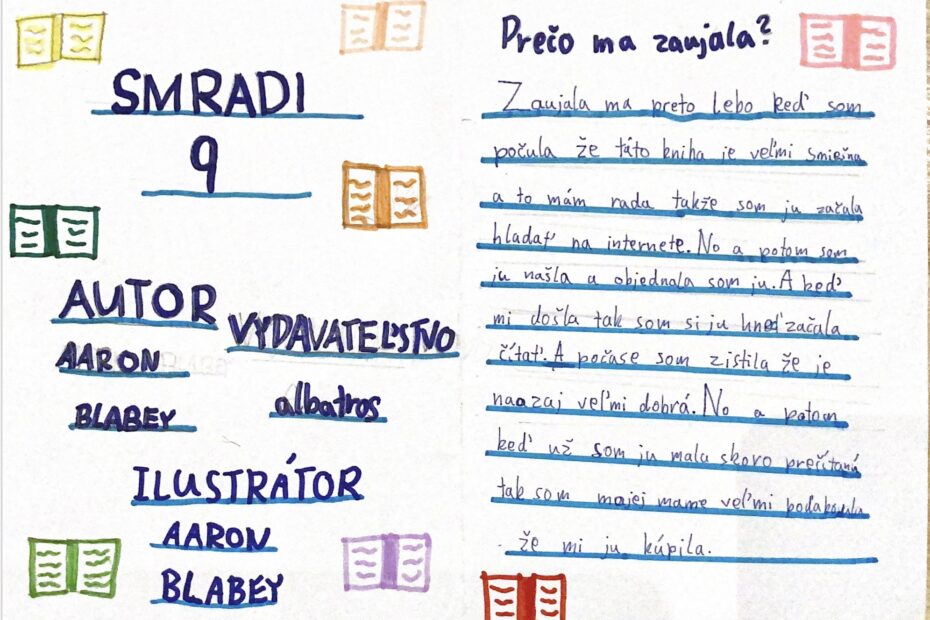 SMRADI
9
AUTOR
AARON
BLABEY
VYDAVATEĽSTVO
albatros
ILUSTRÁTOR
AARON
BLABEY
Prečo ma zaujala?
Zaujala ma preto lebo keď som
počula že táto kniha je veľmi smiešna
a to mám rada takže som ju začala
hladať na internete. No a potom som
ju našla a objednala som ju. A keď
mi došla tak som si ju hneď začala
čítať. A počase som zistila že je
naozaj veľmi dobrá. No a potom
keď už som ju mala skoro prečítanú
tak som mojej mame veľmi poďakovala
že mi ju kúpila.